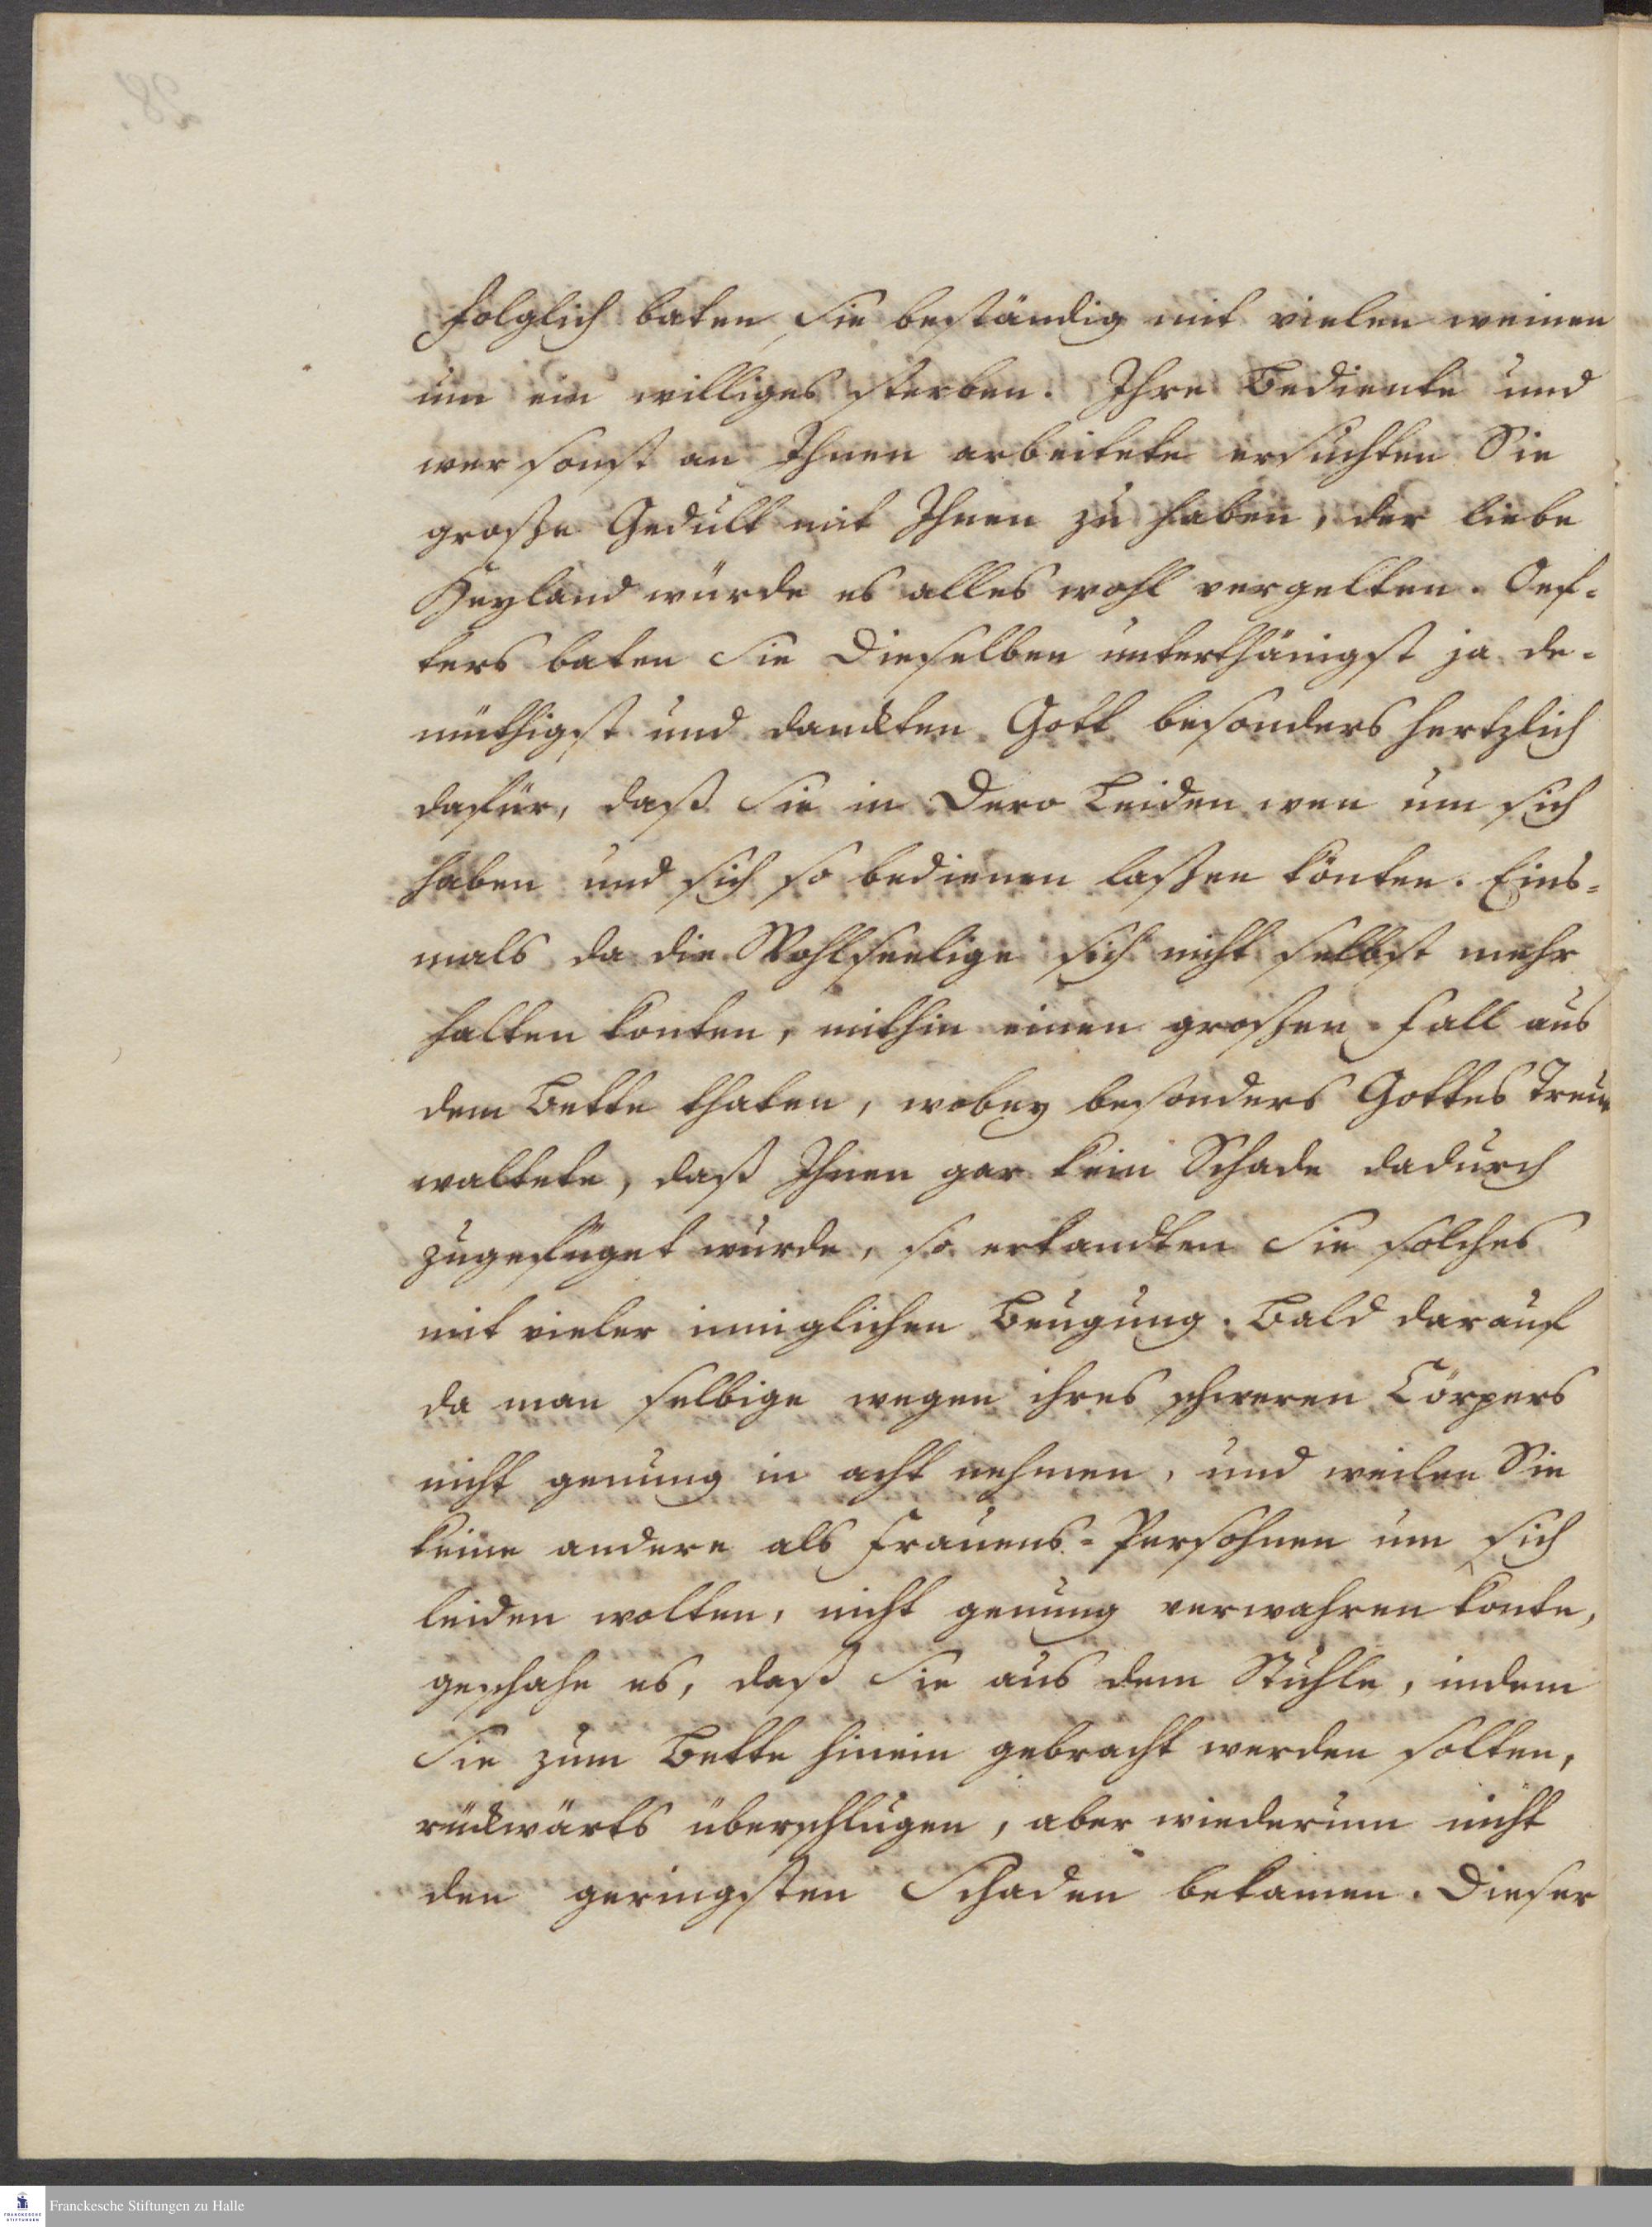 folglich baten Sie beständig mit vielen weinen
um ein williges sterben. Ihre Bediente und
wer sonst an Ihnen arbeitete ersuchten Sie
große Gedult mit Ihnen zu haben, der liebe
Heyland würde es alles wohl vergelten. Oef-
ters baten Sie Dieselben unterthänigst ja de-
müthigst und danckten Gott besonders hertzlich
dafür, daß Sie in Dero Leiden wen um sich
haben und sich so bedienen laßen könten. Eins-
mals da die Wohlseelige sich nicht selbst mehr
halten konten, mithin einen großen Fall aus
dem Bette thaten, wobey besonders Gottes Treue
waltete, daß Ihnen gar kein Schade dadurch
zugefüget wurde, so erkandten Sie solches
mit vieler inniglichen Beugung. Bald darauf
da man selbige wegen ihres schweren Cörpers
nicht genung in acht nehmen, und weilen Sie
keine andere als Frauens-Persohnen um sich
leiden wolten, nicht genung verwahren konte,
geschahe es, daß Sie aus dem Stuhle, indem
Sie zum Bette hinein gebracht werden solten,
rückwärts überschlugen, aber wiederum nicht
den geringsten Schaden bekamen. Dieser
Franckesche Stiftungen zu Halle